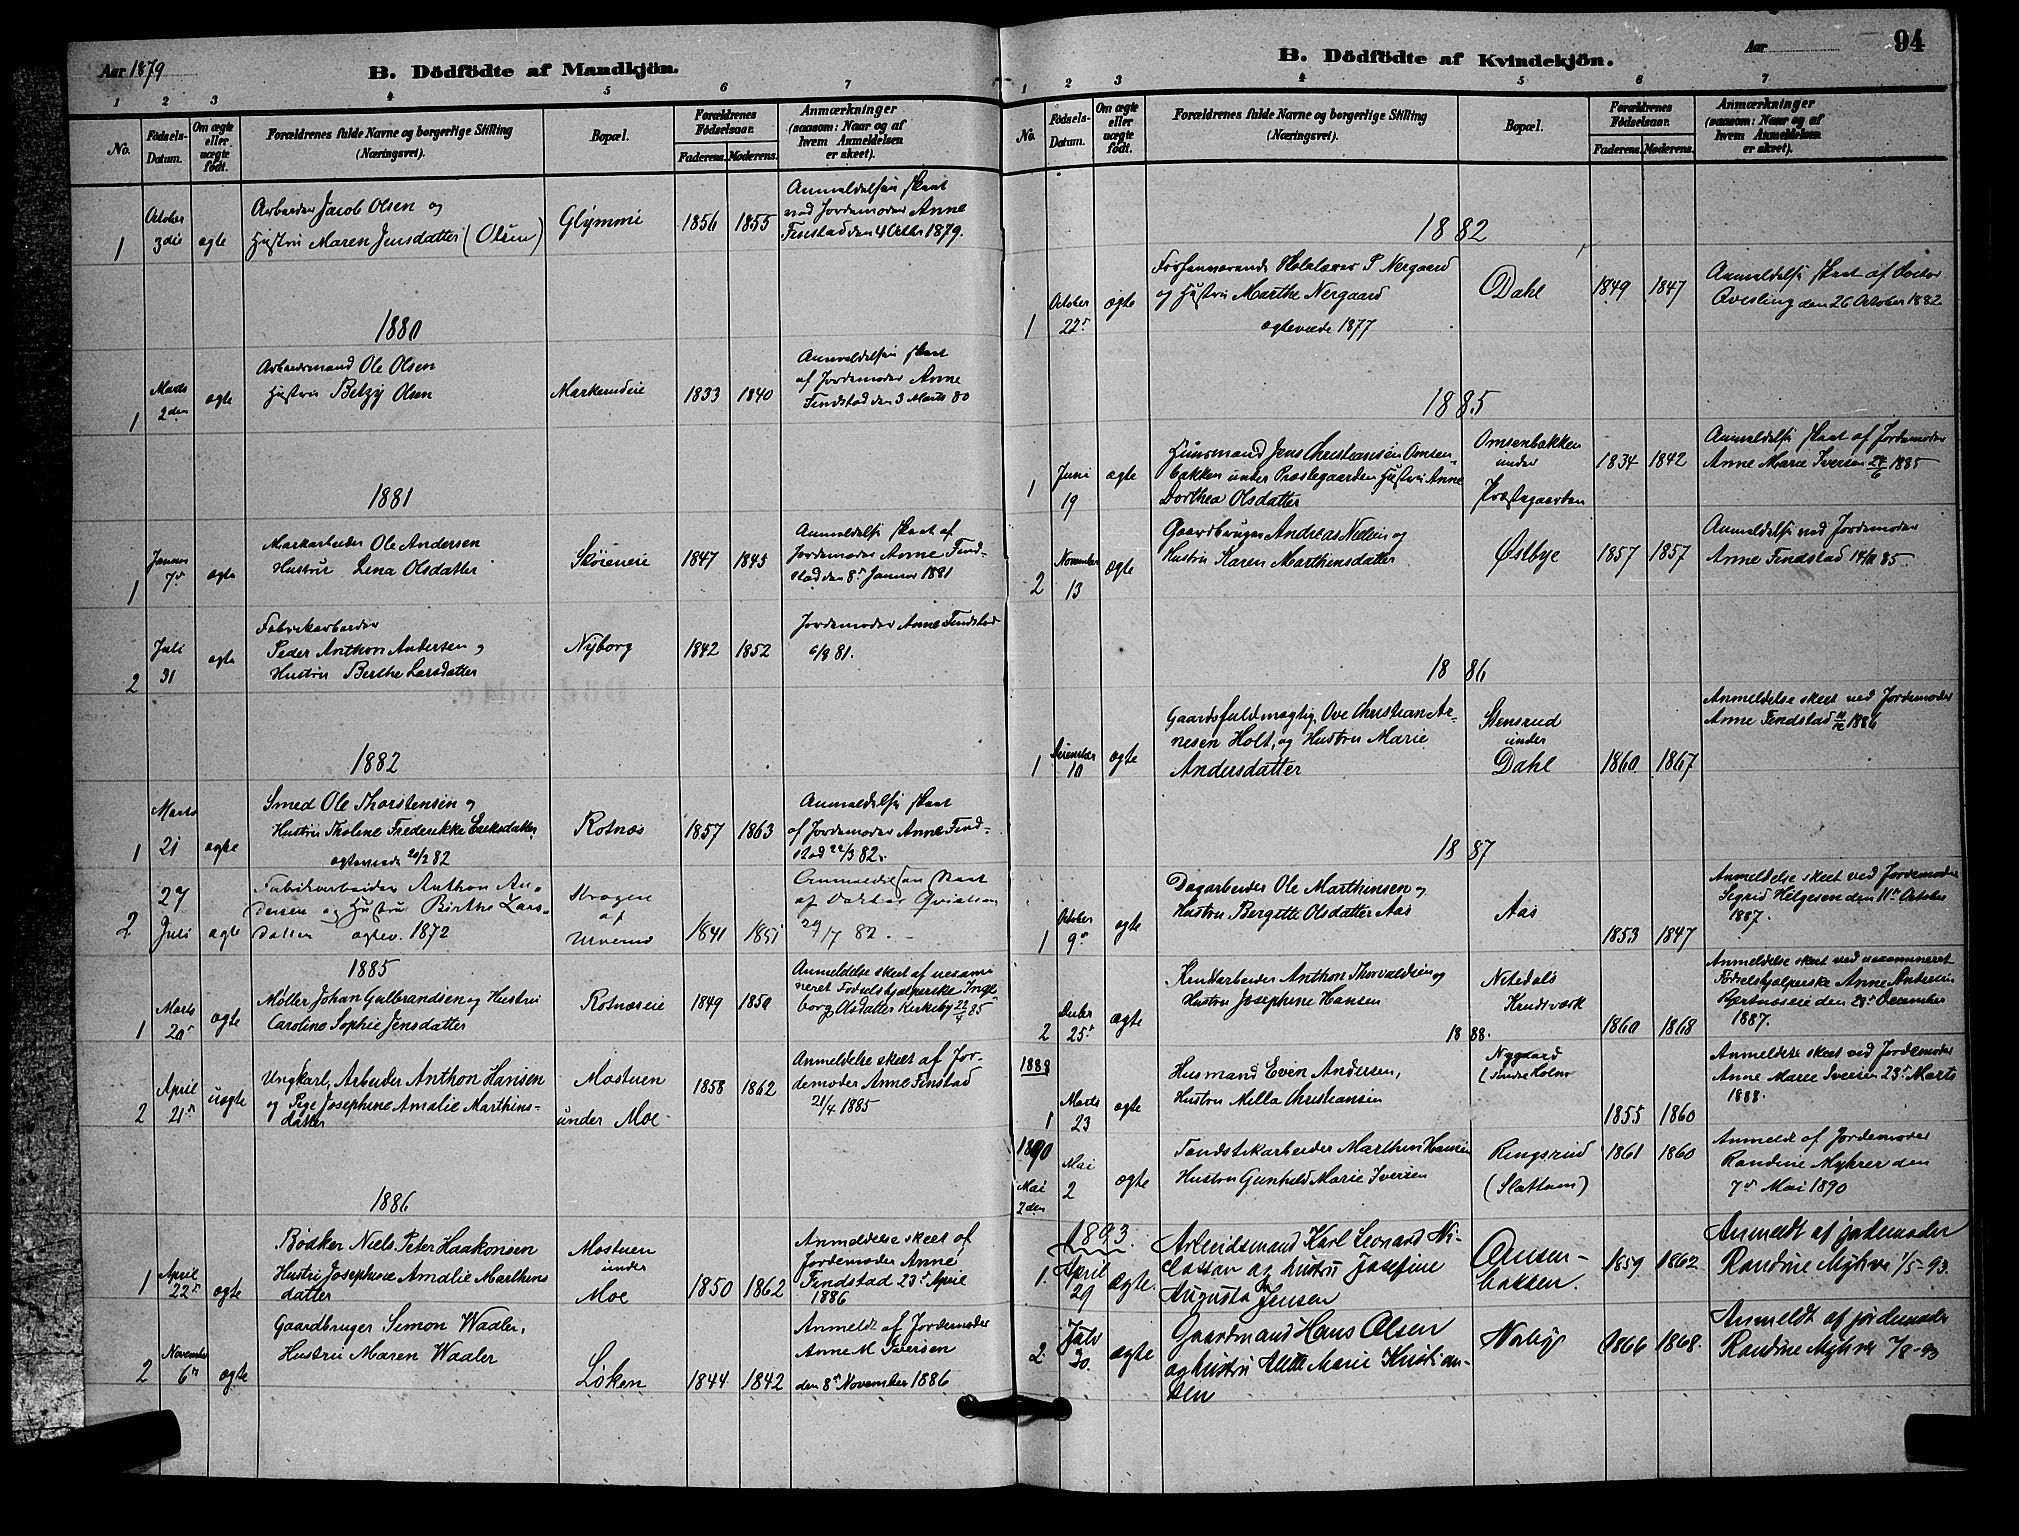 Aar 1879
B. Dödfödte af Mandkjön.
1 2 3 4 5 6 7
No.
Födsels-Datum.
Om ægte eller uægte födt.
Forældrenes fulde Navne og borgerlige Stilling
(Næringsvei).
Bopæl.
Forældrenes Fødselsaar.
Faderens. Moderens.
Anmærkninger
(saasom: Naar og af
hvem Anmeldelsen
er skeet).
1 October 3die ægte
Arbeider Jacob Olsen og
Hustru Maren Jensdatter (Olsen)
Glymmi 1856 1855
Anmeldelsen skeet
ved Jordemoder Anne
Finstad den 4 Octbr 1879.
1880
1 Marts 2den ægte
Arbeidsmand Ole Olsen
Hustru Betzy Olsen
Markerudeie 1833 1840
Anmeldelsen skeet
af Jordemoder Anne
Findstad den 3 Marts 80
1881
1 Januar 7de ægte
Markarbeider Ole Andersen
Hustru Lina Olsdatter
Skøieneie 1847 1845
Anmeldelse skeet af
Jordemoder Anne Find-
stad den 8de Januar 1881
2 Juli 31 ægte
Fabrikarbeider
Peder Anthon Andersen og
Hustru Berthe Larsdatter
Nyborg 1842 1852
Jordemoder Anne Findstad
6/8 81.
1882
1 Marts 21 ægte
Smed Ole Thorstensen og
Hustru Tholine Frederikke Eriksdatter
ægteviede 20/2 82
Rotnæs 1857 1863
Anmeldelse skeet
af Jordemoder Anne Find-
stad 22/3 82.
2 29 Juli ægte
Fabrikarbeider Anthon An-
dersen og Hustru Birthe Lars-
datter ægtev. 1872
Kragen
af
1841 1851
Anmeldelsen skeet
af Doktor
29/7 82.
1885
1 Marts 20de ægte
Møller Johan Gulbrandsen og Hustru
Caroline Sophie Jensdatter
Rotnæseie 1849 1850
Anmeldelse skeet af uexami
neret Fødselshjælperske Inge-
borg Olsdatter Kirkeby 22/4 85
2 April 21de uægte
Ungkarl, Arbeider Anthon Hansen
og Pige Josephine Amalie Marthins-
datter
Mostuen
under Moe
1858 1862
Anmeldelse skeet af Jor-
demoder Anne Finstad
21/4 1885
1886
1 April 22de ægte
Bødker Niels Peter Haakonsen
Hustru Josephine Amalie Marthins
datter
Mostuen
under
Moe
1850 1862
Anmeldelse skeet af
Jordemoder Anne
Findstad 23de April
1886
2 November 6te ægte
Gaardbruger Simon Waaler,
Hustru Maren Waaler
Løken 1844 1842
Anmeldt af Jordemoder
Anne M Iversen
den 8de November 1886
Aar
94
B. Dödfödte af Kvindekjön.
1 2 3 4 5 6 7
No.
Födsels-Datum.
Om ægte eller uægte födt.
Forældrenes fulde Navne og borgerlige Stilling
(Næringsvei).
Bopæl.
Forældrenes Fødselsaar.
Faderens. Moderens.
Anmærkninger
(saasom: Naar og af
hvem Anmeldelsen
er skeet).
1882
1 October 22de ægte
Forhenværende Skolelærer P Nergaard
og Hustru Marthe Nergaard
ægteviede 1877
Dahl 1849 1847
Anmeldelse skeet af Doctor
Qvisling den 26 October 1882
1885
1 Juni 19 ægte
Huusmand Jens Christiansen Omsen-
bakken under Præstegaarden Hustru Anne
Dorthea Olsdatter
Omsenbakken
under
Præstegaarden
1834 1842
Anmeldelse skeet af Jordemoder
Anne Marie Iversen 24/6 1885
2 November 13 ægte
Gaardbruger Andreas Nielsen og
Hustru Karen Marthinsdatter
Østbye 1857 1857
Anmeldelse ved Jordemoder
Anne Findstad 14/11 85
1886
1 December 10 ægte
Gaardsfuldmægtig, Ove Christian Ar-
nesen Holt, og Hustru Marie
Andersdatter
Stensrud
under
Dahl
1860 1867
Anmeldelse skeet ved Jordemoder
Anne Findstad 11/12 1886
1887
1 October 9de ægte
Dagarbeider Ole Marthinsen og
Hustru Bergitte Olsdatter Aas
Aas 1853 1847
Anmeldelse skeet ved Jordemoder
Sigrid Helgesen den 11te October
1887.
2 Decbr 25de ægte
Krudtarbeider Anthon Thorvaldsen og
Hustru Josephine Hansen
Nitedals
Krudtværk
1860 1868
Anmeldelse skeet ved uexamineret
Fødselshjælperske Anne Andersen
den 28de December
1887.
1888.
1888
1 Marts 23 ægte
Husmand Even Andersen,
Hustru Milla Christiansen
Nygaard
(Søndre Holm
1855 1860
Anmeldelse skeet ved Jordemoder
Anne Marie Iversen 23de Marts
1888.
1890
Mai
2den
Mai 2 ægte
Tændstikarbeider Marthin Hansen
Hustru Gunhild Marie Iversen
Ringsrud
(Slattum)
1861 1860
Anmeldt af Jordemoder
Randine Myhrer den
7de Mai 1890
1893.
1. April 29 ægte.
Arbeidsmand Karl Leonard Ni-
laison og hustru Josefine
Augusta Jensen
Omsen-
bakken.
1859 1862
Anmeldt af jordemoder
Randine Myhre 1/5-93.
2. July 30. ægte
Gaardmand Hans Olsen
og hustru Marie Kristian-
sen
Naby 1866 1868.
Anmeldt af jordemoder
Randine Myhre 7/8-93